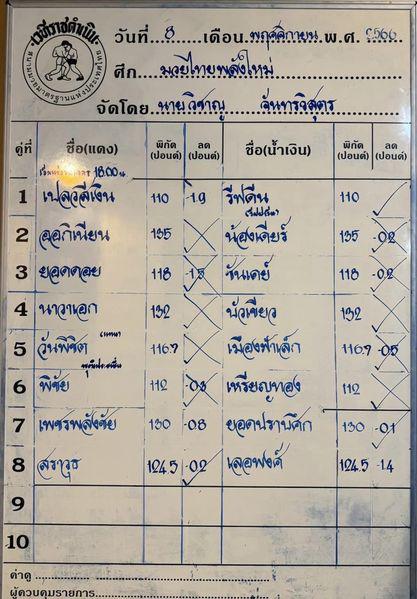 เวทีราชดำเนิน
สนามมวยมาตรฐานแห่งประเทศไทย
วันที่ 8 เดือน พฤศจิกายน พ.ศ. 2566
ศึก มวยไทยพลังใหม่
จัดโดย นายวิชาญ จันทรวิสูตร
คู่ที่ ชื่อ(แดง) พิกัด (ปอนด์) ลด (ปอนด์) ชื่อ(น้ำเงิน) พิกัด (ปอนด์) ลด (ปอนด์)
18.00 น.
1 110 -1.9 รีฟดีน 110 ✓
2 135 น้องเคียร์ 135 -0.2
3 ยอดดอย 118 -1.5 ซันเดย์ 118 -0.2
4 นาวาเอก 132 บัวเขียว 132
5 วันพิชิต 116.7 เมืองฟ้าเล็ก 116.7 -0.5
6 พิชัย 112 เหรียญทอง 112
7 เพชรพลังชัย 130 -0.8 ยอดปราบศึก 130 -0.1
8 สราวุธ 124.5 -0.2 เลอพงศ์ 124.5 -1.4
9
10
ค่าดู
ผู้ควบคุมรายการ